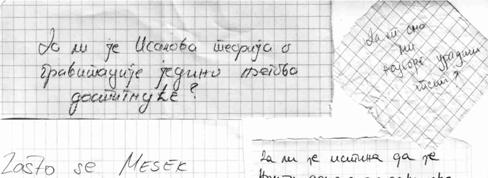 Да ли је Исакова теорија о
гравитације једино његово
достигнуће?
Да ли смо
ми
најбоље урадили
тест?
Zašto se MESEK
Да ли је истина да је